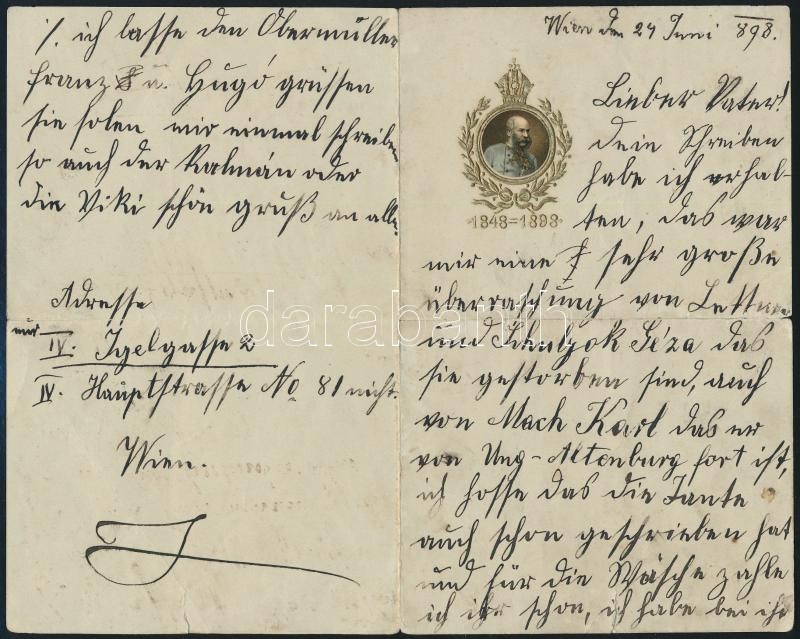 Wien den 24 Juni 898.
Lieber Vater!
dein Schreiben
habe ich erhal-
ten, das war
1848=1898
mir eine sehr große
überraschung von
und Géza das
sie gestorben sind, auch
von Mach Karl das er
von Ung-Altenburg fort ist,
ich hoffe das die Tante
auch schon geschrieben hat
und für die Wäsche zahle
ich ihr schon, ich habe bei ihr
/. ich lasse den Obermüller
Franz u. Hugó grüssen
sie solen mir einmal schreiben
so auch der Kalmán oder
die Viki schön gruß an alle.
Adresse
nur
IV. Igelgasse 2
IV. Hauptstrasse No 81 nicht.
Wien.
darabanth